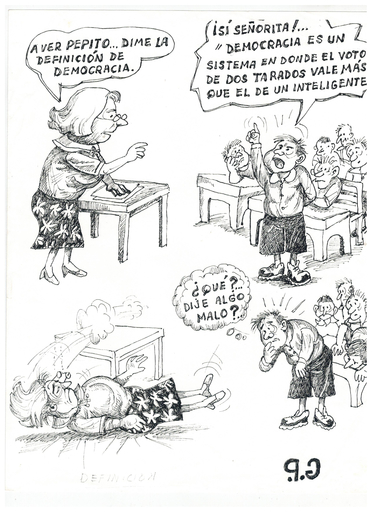 A VER PEPITO... DIME LA
DEFINICIÓN DE
DEMOCRACIA.
¡SÍ SEÑORITA!...
"DEMOCRACIA ES UN
SISTEMA EN DONDE EL VOTO
DE DOS TARADOS VALE MÁS
QUE EL DE UN INTELIGENTE
¿QUÉ?...
DIJE ALGO
MALO?...